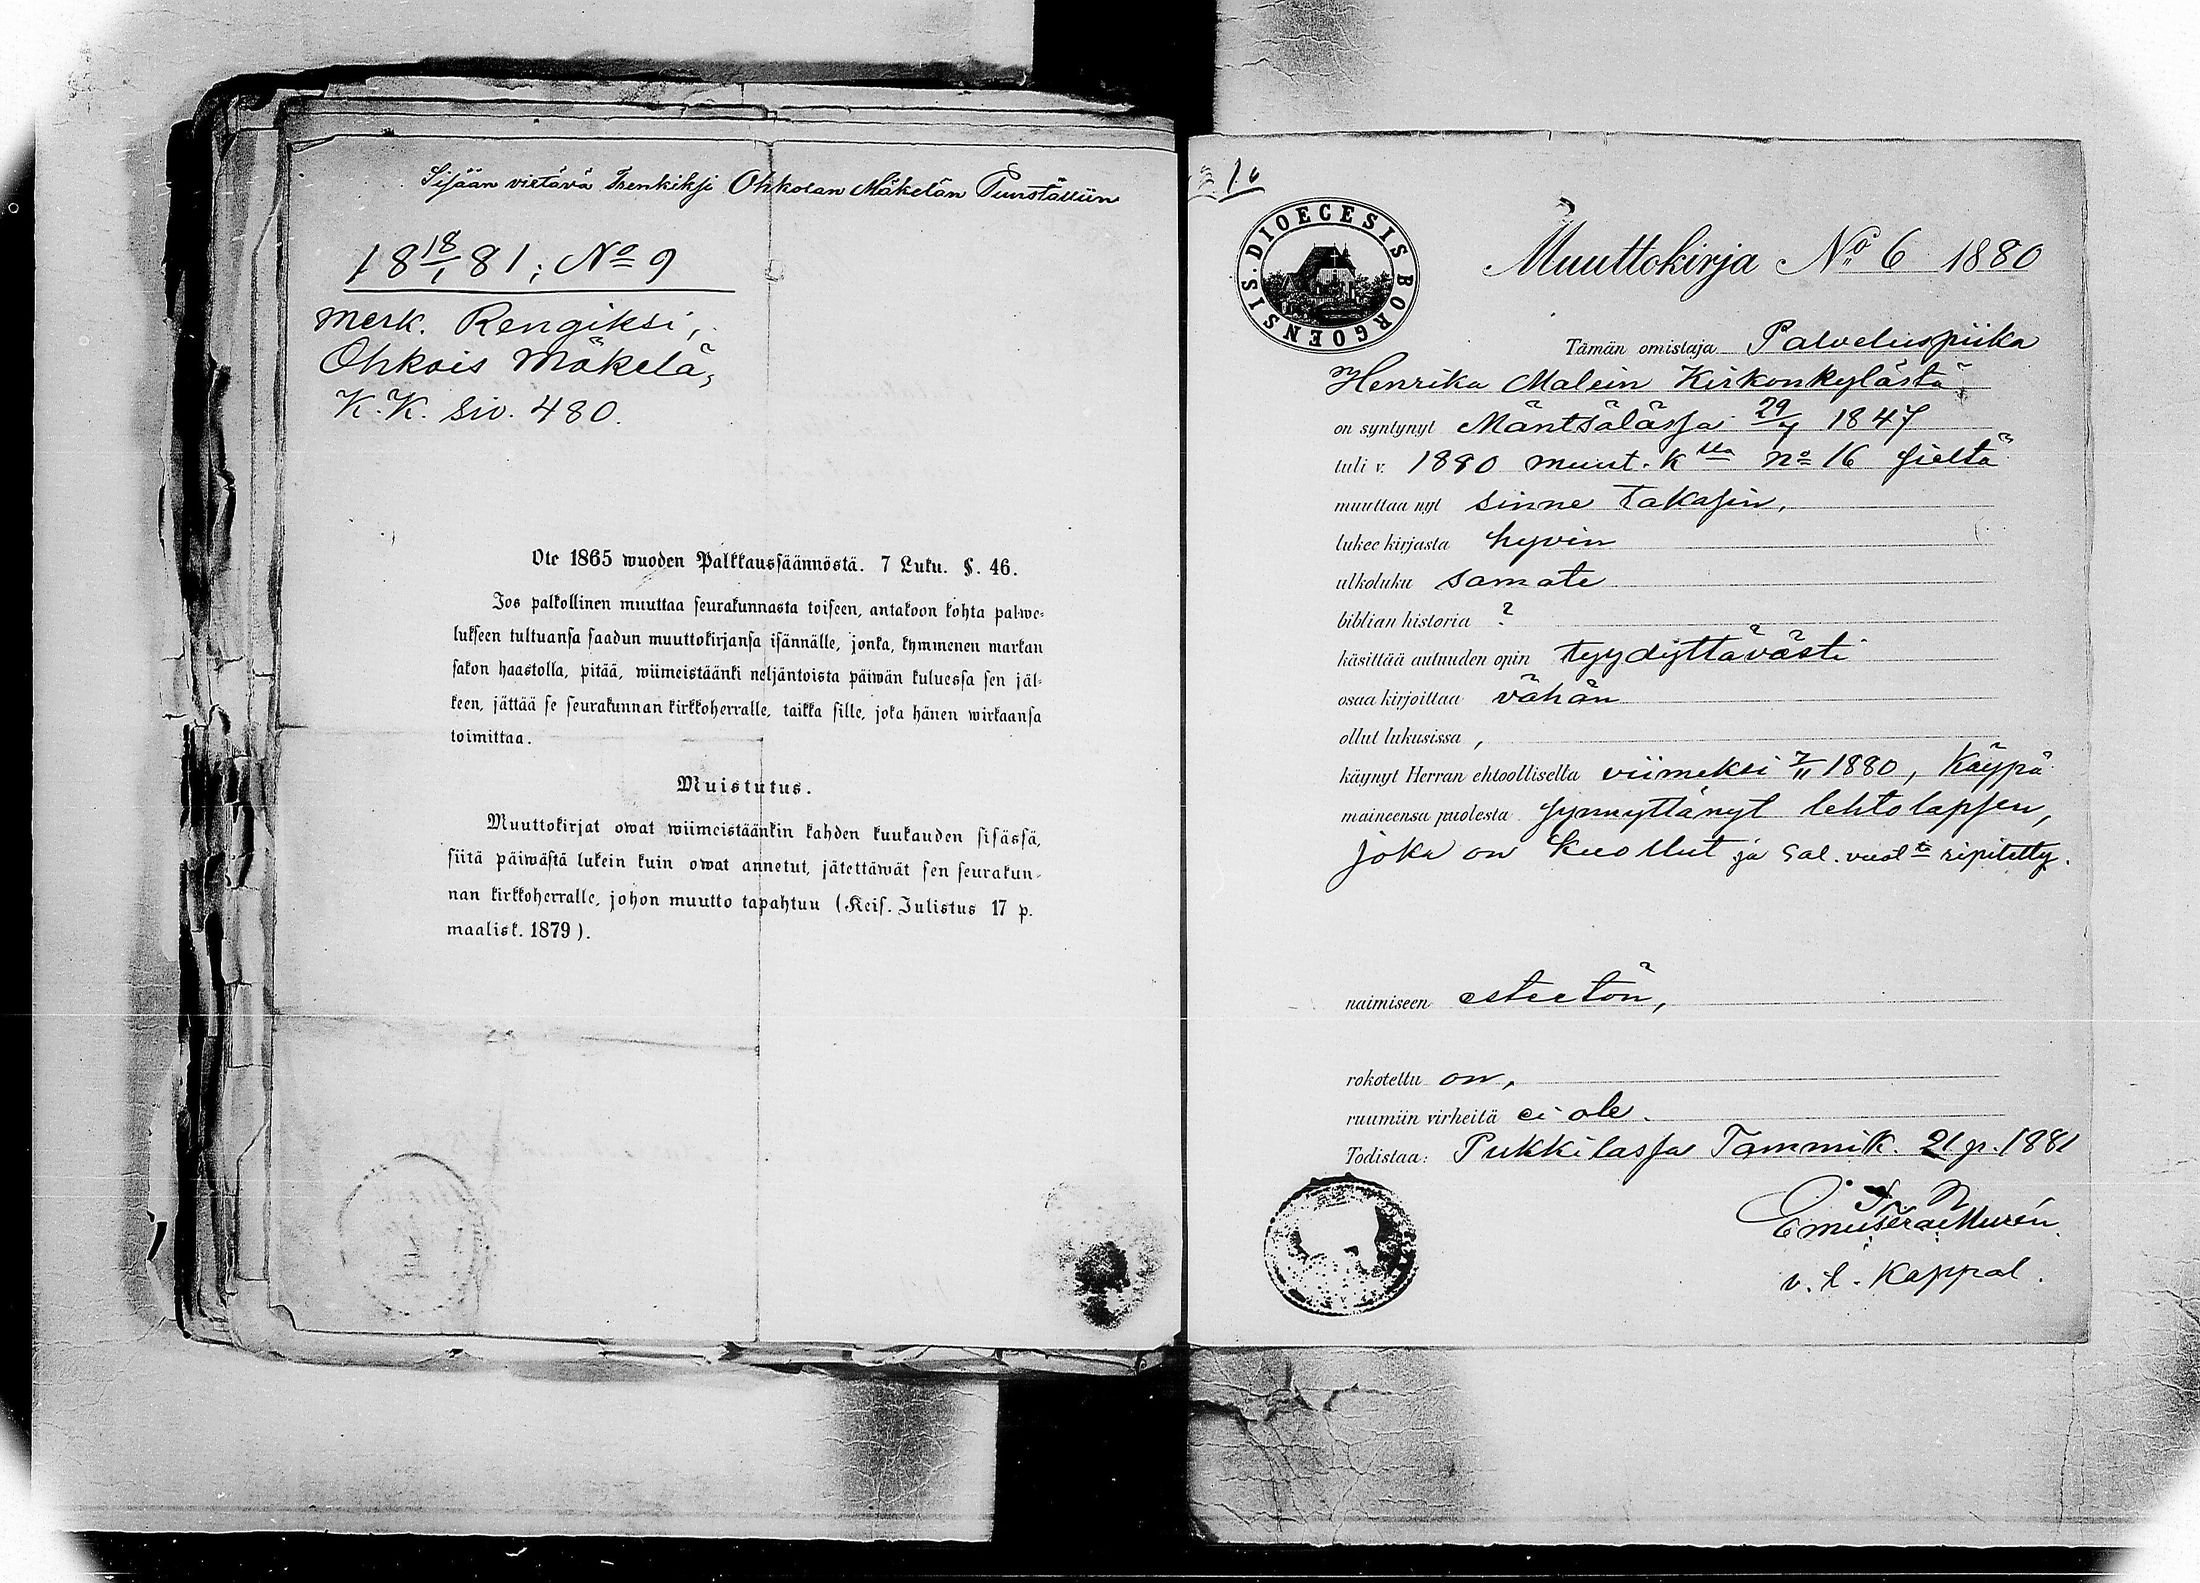 Sisään vietävä Trenkiksi Ohkolan Mäkelän Puustelliin
18 18/1 81; No 9
merk. Rengiksi,
Ohkois Mäkelä,
K.K. siv. 480.
Ote 1865 wuoden Palkkaussäännöstä. 7 Luku. §. 46.
Jos palkollinen muuttaa seurakunnasta toiseen, antakoon kohta palwe-
lukseen tultuansa saadun muuttokirjansa isännälle, jonka, kymmenen markan
sakon haastolla, pitää, wiimeistäänki neljäntoista päiwän kuluessa sen jäl-
keen, jättää se seurakunnan kirkkoherralle, taikka sille, joka hänen wirkaansa
toimittaa.
Muistutus.
Muuttokirjat owat wiimeistäänkin kahden kuukauden sisässä,
siitä päiwästä lukein kuin owat annetut, jätettäwät sen seurakun-
nan kirkkoherralle, johon muutto tapahtuu (Keis. Julistus 17 p.
maalisk. 1879).
16
DIOECESIS BORGOENSIS.
Muuttokirja No 6 1880
Tämän omistaja Palveluspiika
Henrika Malein Kirkonkylästä
on syntynyt Mäntsälässä 29/4 1847
tuli v. 1880 muut. klla No 16 sieltä
muuttaa nyt sinne takasin.
lukee kirjasta hyvin
ulkoluku samate
biblian historia ?
käsittää autuuden opin tyydyttävästi
osaa kirjoittaa vähän
ollut lukusissa ,
käynyt Herran ehtoollisella viimeksi 7/11 1880, Käypä
maineensa puolesta synnyttänyt lehtolapsen,
joka on kuollut ja sal. vuot:ta ripitetty.
naimiseen esteetön,
rokotettu on,
ruumiin virheitä ei ole.
Todistaa: Pukkilassa Tammik. 21 p. 1881
v.t. Kappal.